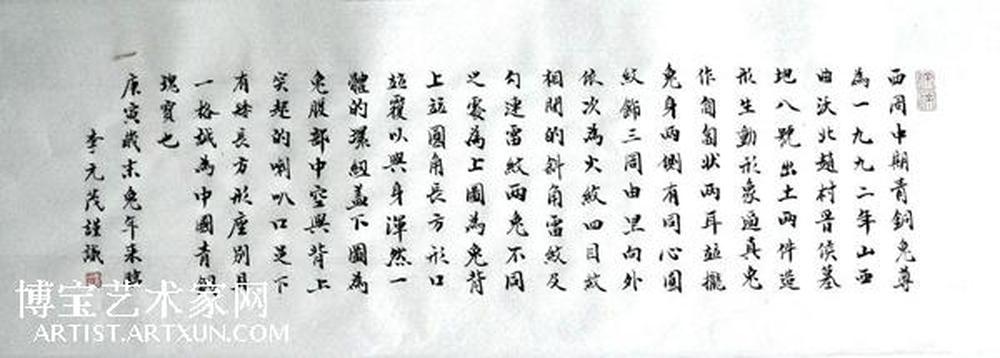 西周中期青銅兔尊
為一九九二年山西
曲沃北趙村晉侯墓
地八號出土兩件造
形生動形象逼真兔
作匍匐狀兩耳並攏
兔身兩側有同心圓
紋飾三同由里向外
依次為火紋四目紋
相間的斜角雷紋及
勾連雷紋兩兔不同
之處為上圖為兔背
上竝圓角長方形口
竝覆以與身渾然一
體的環紐蓋下圖為
兔股部中空與背上
突起的喇叭口足下
有矮長方形座別具
一格誠為中國青銅
瑰寶也
庚寅歲末兔年來臨
李元茂謹識
博宝艺术家网
ARTIST.ARTXUN.COM